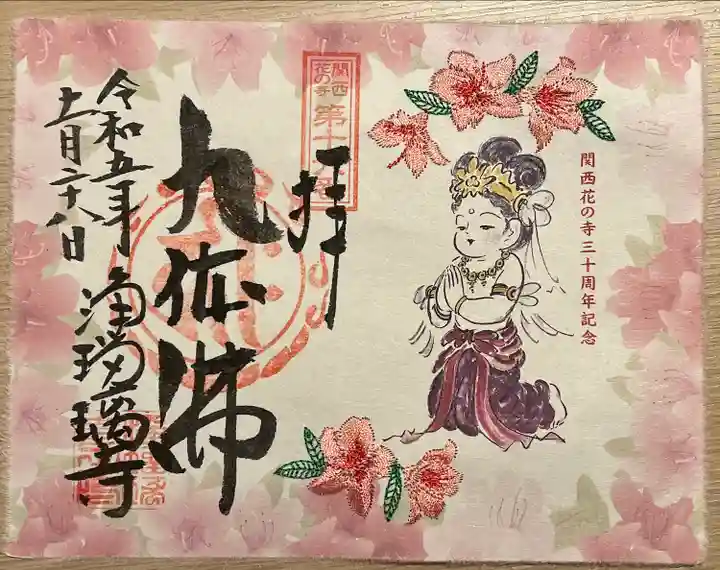 関西花の寺三十周年記念
関西
花の寺
第十
拝
九体佛
令和五年
十一月二十八日
浄瑠璃寺